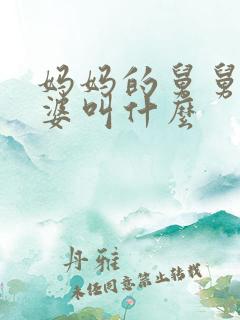 妈妈的舅舅
婆叫什麼
丹雅
未经同意禁止转载